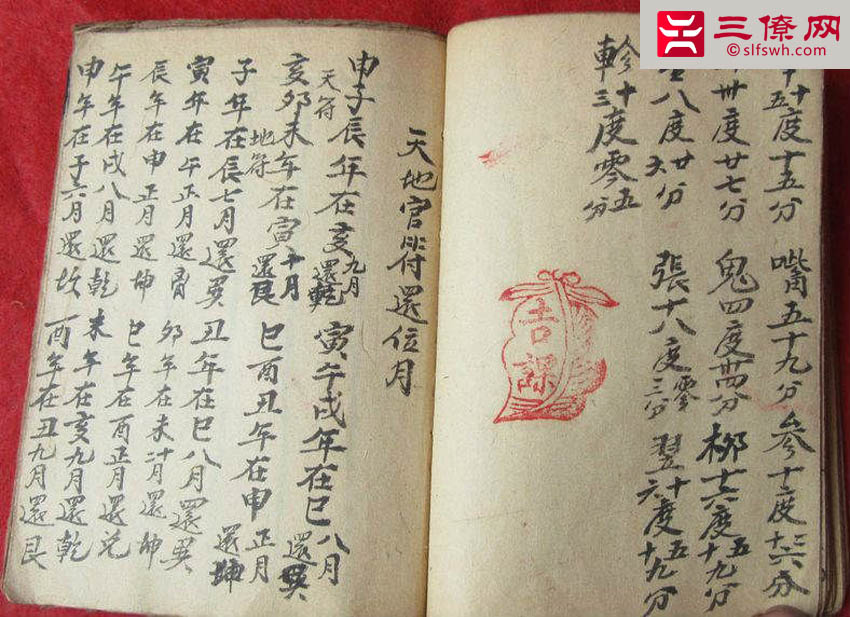 三僚网
©slfswh.com
十五度十五分 觜五十九分 參十度十六分
卅度廿七分 鬼四度卌四分 柳十六度五十九分
八度廿六分 張十八度零三分 翌十六度五十九分
軫十三度零五分
吉課
天地官符還位月
申子辰年在亥九月還乾 寅午戌年在巳八月還巽
天符
亥卯未年在寅十月還艮 巳酉丑年在申正月還坤
地符
子年在辰七月還巽 丑年在巳八月還巽
寅年在午正月還 卯年在未十月還坤
辰年在申正月還坤 巳年在酉正月還兌
午年在戌八月還乾 未年在亥九月還乾
申年在子六月還坎 酉年在丑九月還艮